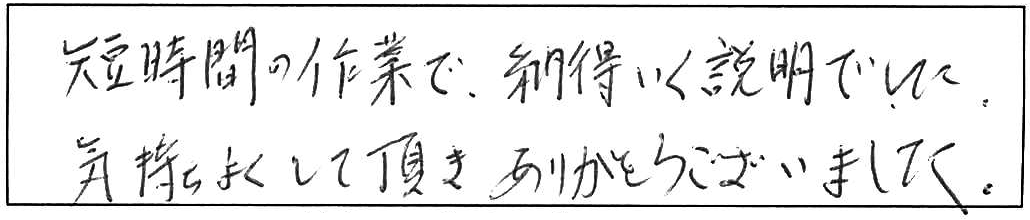 短時間の作業で、納得いく説明でした。
気持ちよくして頂きありがとうございました。